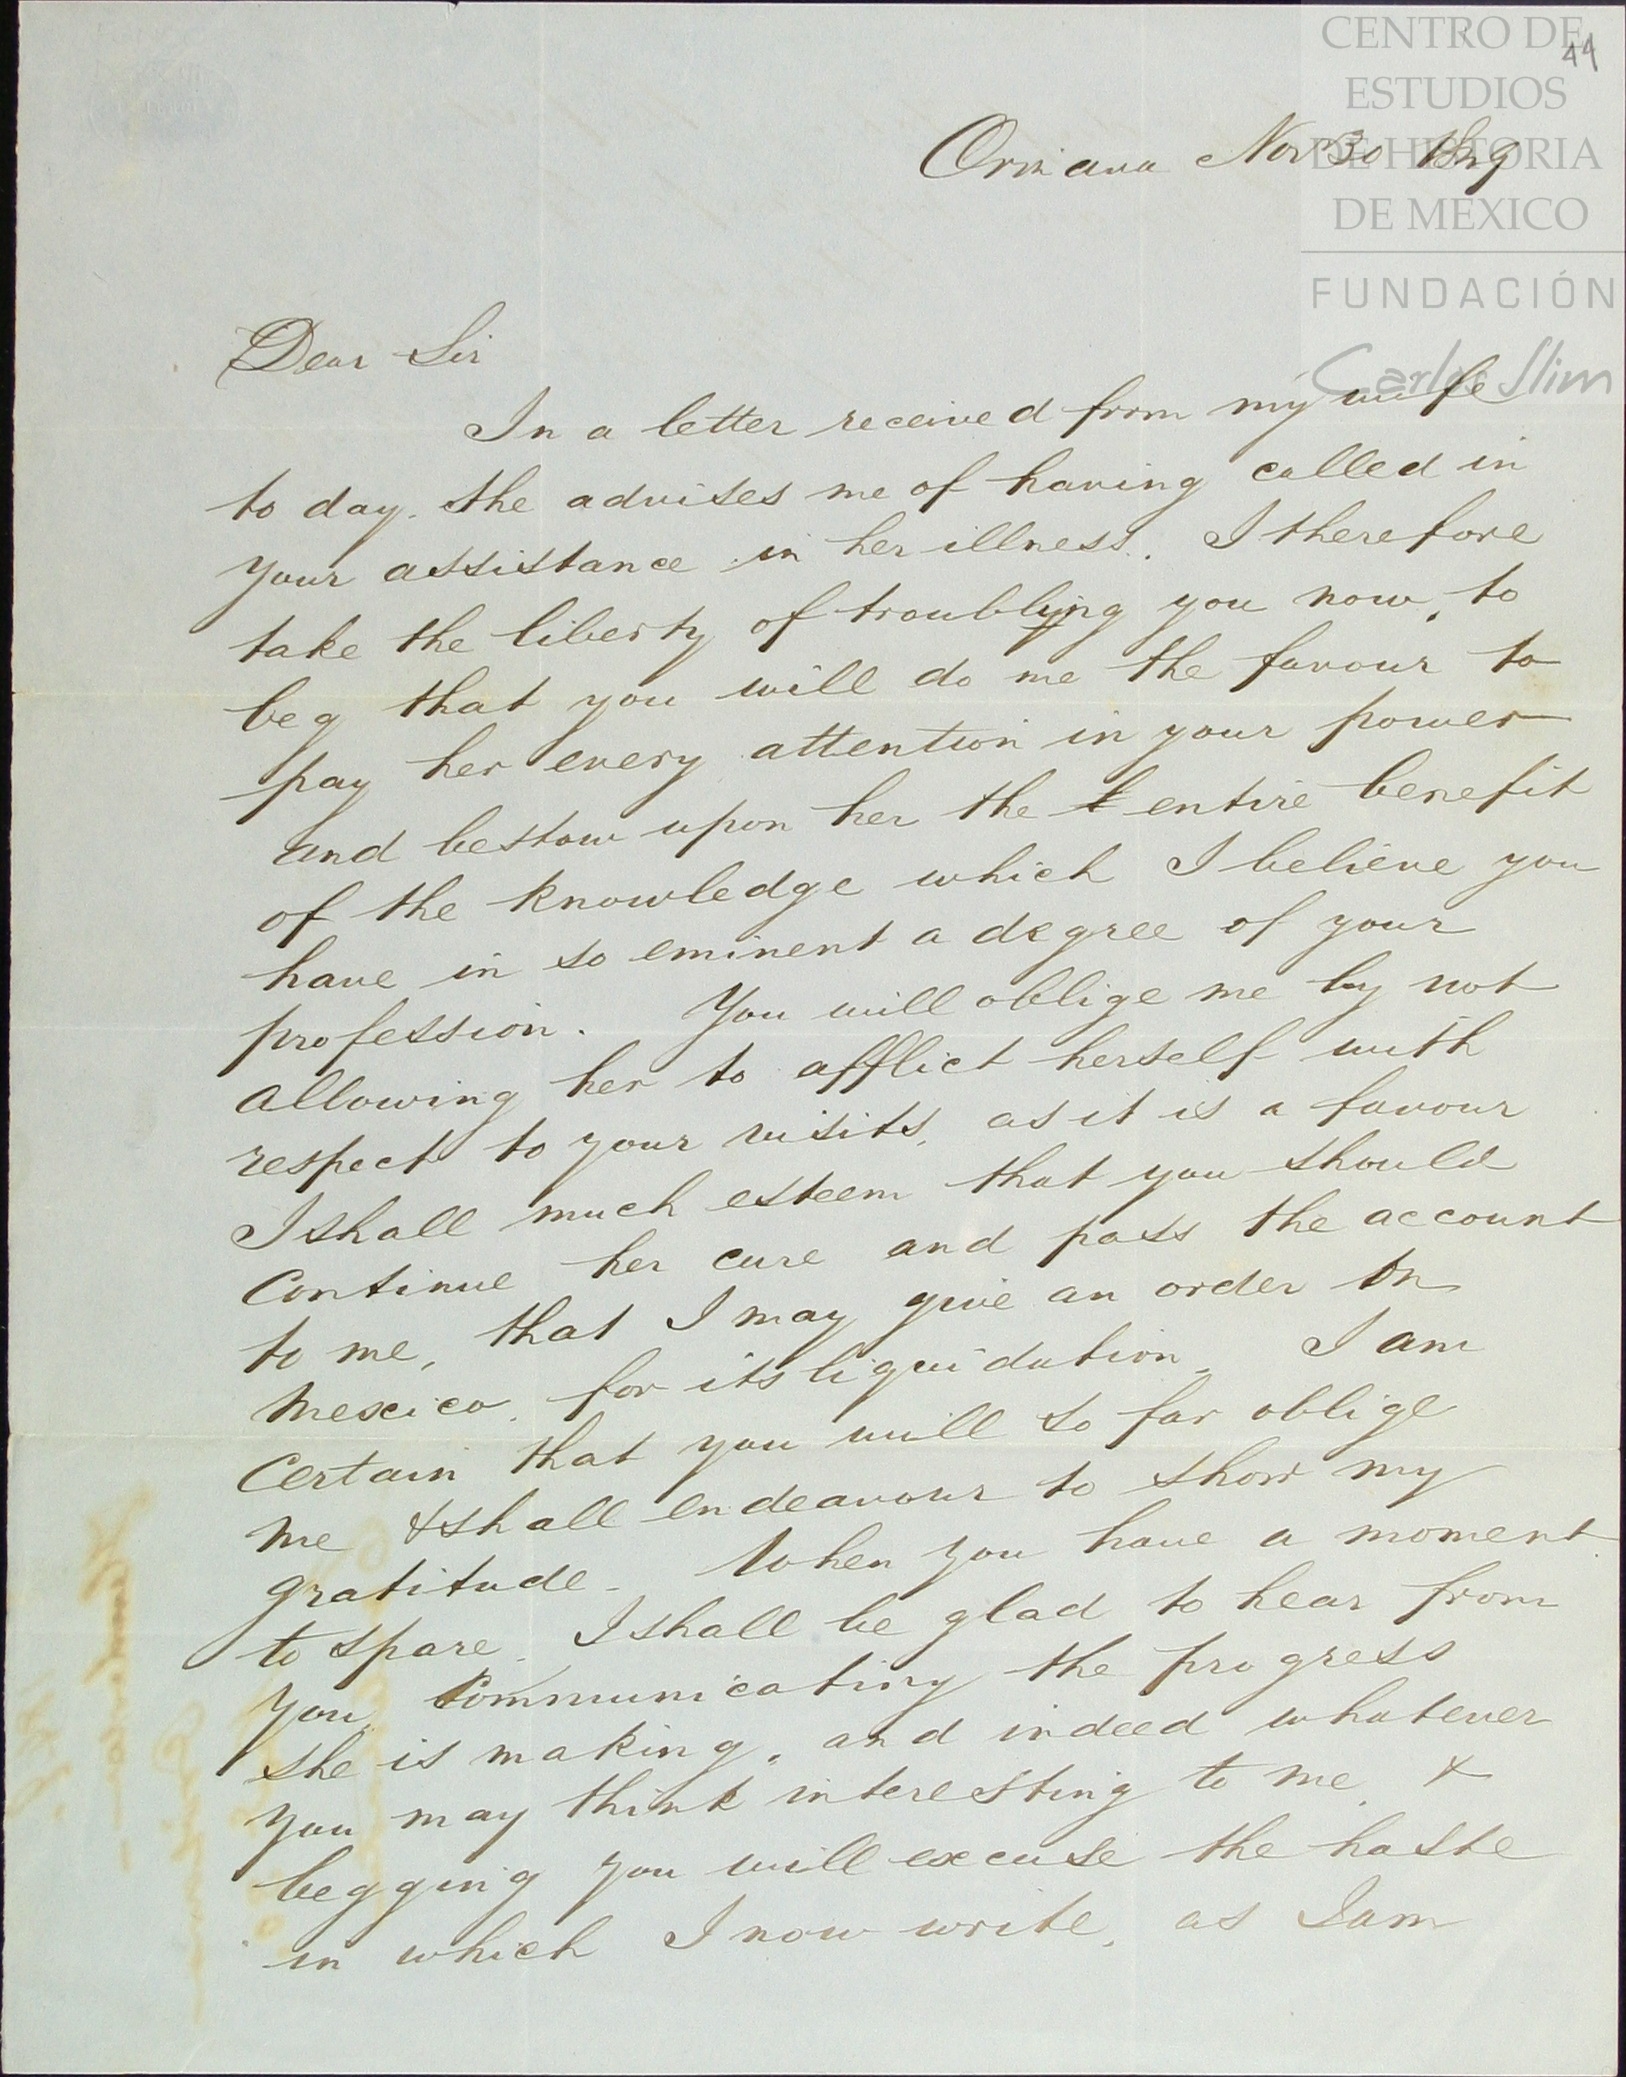 CENTRO DE
ESTUDIOS
DE HISTORIA
DE MÉXICO
FUNDACIÓN
Carlos Slim
44
Nov 30
Dear Sir
In a letter received from my wife
to day. she advises me of having called in
your assistance in her illness. I therefore
take the liberty of troubling you now, to
beg that you will do me the favour to
pay her every attention in your power
and bestow upon her the entire benefit
of the knowledge which I believe you
have in so eminent a degree of your
profession. You will oblige me by not
allowing her to afflict herself with
respect to your visits, as it is a favour
I shall much esteem that you should
Continue her cure and pass the account
to me, that I may give an order on
Mexico, for its liquidation. I am
Certain that you will so far oblige
me & shall endeavour to show my
gratitude - When you have a moment
to spare I shall be glad to hear from
you, Communicating the progress
she is making, and indeed whatever
you may think interesting to me, &
begging you will excuse the haste
in which I now write, as I am